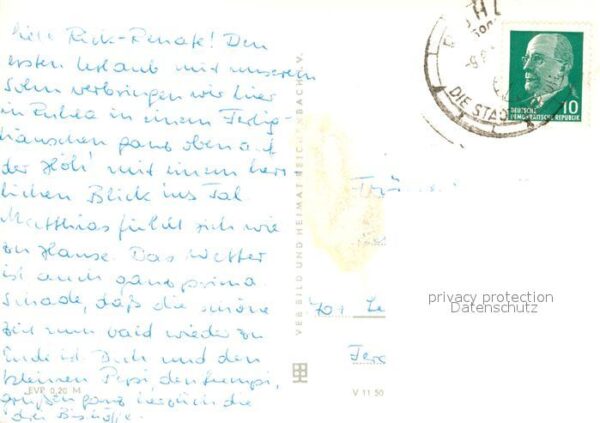 Liebe Rick-Renate! Den
ersten Urlaub mit unserem
Sohn verbringen wir hier
in Ruhla in einem Fertig-
häuschen ganz oben auf
der Höh' mit einem herr-
lichen Blick ins Tal
Matthias fühlt sich wie
zu Hause. Das Wetter
ist auch ganz prima.
Schade, daß die schöne
Zeit nun bald wieder zu
Ende ist. Dich und den
kleinen Pepi
grüßen ganz herzlich die
drei
EVP 0,20 M
VEB BILD UND HEIMAT REICHENBACH I. V.
V 11 50
DIE STAD
DEUTSCHE
DEMOKRATISCHE REPUBLIK
10
701 Le
privacy protection
Datenschutz